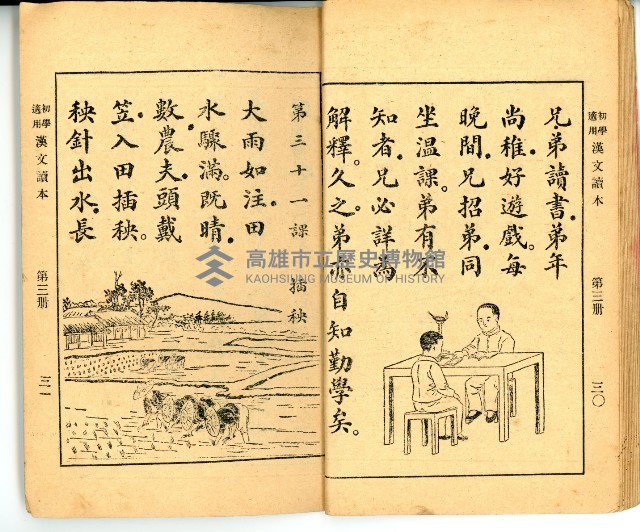 初學適用 漢文讀本 第三册 三〇
兄弟讀書。弟年
尚稚。好遊戲。每
晚間。兄招弟同
坐溫課。弟有不
知者。兄必詳爲
解釋。久之。弟亦自知勤學矣。
第三十一課 插秧
大雨如注。田
水驟滿。既晴。
數農夫。頭戴
笠。入田插秧。
秧針出水。長
初學適用 漢文讀本 第三册 三一
高雄市立歷史博物館
KAOHSIUNG MUSEUM OF HISTORY